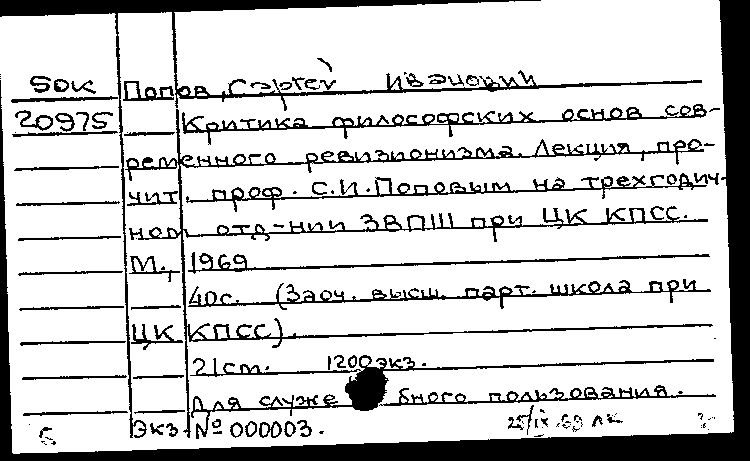 SOK Попов, Сергей Иванович
20975 Критика философских основ сов-
ременного ревизионизма. Лекция, про-
чит. проф. С.И.Поповым на трехгодич-
ном отд-нии ЗВПШ при ЦК КПСС.
М., 1969
40с. (Заоч. высш. парт. школа при
ЦК КПСС).
21cm. 1200экз.
Для служе бного пользования.
Экз. № 000003.
25/ix 69 лк